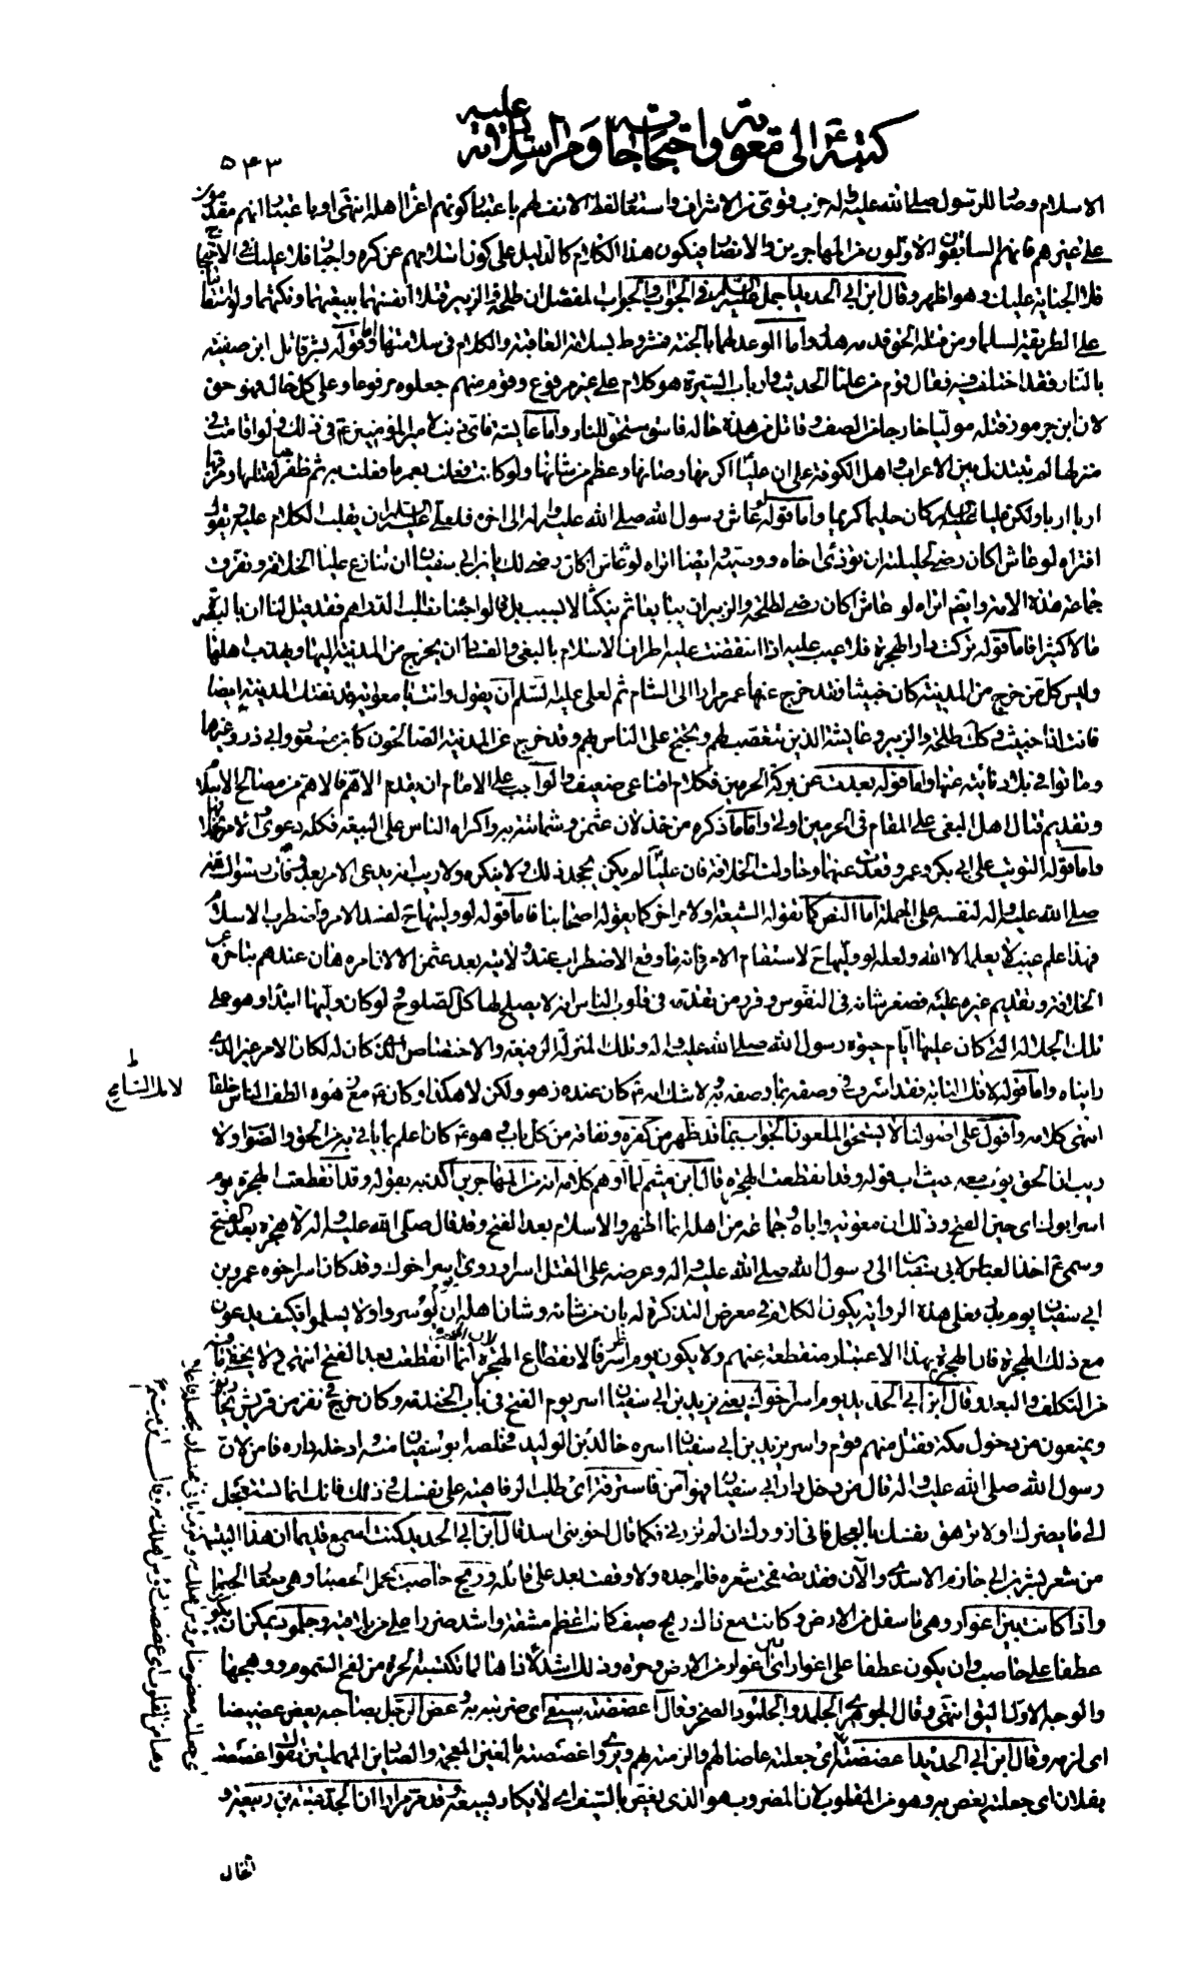 كتبه ع إلى معوية واحتجاجاته ومراسلاته عليه
٥٤٣
الاسلام وصار للرسول صلى الله عليه واله حزب قوى من الاشراف واستعا لفظ الانف لهم باعتبا كونهم اعزّا اهله انتهى او باعتبا انهم مقدمون
على غيرهم فانهم السابقون الاولون من المهاجرين والانصا فيكون هذا الكلام كالدليل على كون اسلامهم عن كره واجبا فلا عليك
فلا الجناية عليك وهو اظهر وقال ابن ابى الحديد اجمل عليه السلم فى الجواب والجواب المفصل ان طلحة والزبير قتلا انفسهما ببغيهما ونكثهما ولو استقاما
على الطريقة لسلما ومن قتله الحق فدمه هدر واما الوعد لهما بالجنة فمشروط بسلامة العاقبة والكلام فى سلامتهما واما قوله بشر قاتل ابن صفية
بالنار فقد اختلف فيه فقال قوم من علما الحديث وارباب السيرة هو كلام على ع غير مرفوع وقوم منهم جعلوه مرفوعا وعلى كل حال فهو حق
لان ابن جرموز قتله موليا خارجا من الصف وقاتل من هذه حاله فاسق مستحق للنار واما عايشة فاى ذنب لامير المؤمنين ع فى ذلك ولو اقامت فى
منزلها لم تبتذل بين الاعراب واهل الكوفة على ان عليا اكرمها وصانها وعظم من شانها ولو كانت فعلت بعمر ما فعلت به ثم ظفر بها لقتلها ومزقها
اربا اربا ولكن عليا عليه السلم كان حليما كريما واما قوله لو عاش رسول الله صلى الله عليه واله الى اخره فلعلى عليه السلم ان يقلب الكلام عليه ويقول
افتراه لو عاش اكان رضى لحليلته ان توذى اخاه ووصيه وايضا اتراه لو عاش اكان رضى لك يا بن ابى سفيا ان تنازع عليا الخلافة وتفرق
جماعة هذه الامة وايضا اتراه لو عاش اكان رضى لطلحة والزبير ان يبايعا ثم ينكثا لا لسبب بل قالوا جئنا نطلب الدراهم فقد قيل لنا ان بالبصرة
مالا كثيرا فاما قوله تركت دار الهجرة فلا عيب عليه اذا انتقضت عليه اطراف الاسلام بالبغى والفساد ان يخرج من المدينة اليها ويهذب اهلها
وليس كل من خرج من المدينة كان خبيثا فقد خرج عنها عمر مرارا الى الشام ثم لعلى عليه السلم ان يقول وانت يا معوية قد نفتك المدينة ايضا
فانت اذا خبيث وكك طلحة والزبير وعايشة الذين تتعصب لهم وتحتج على الناس بهم وقد خرج عن المدينة الصالحون كابن مسعود وابى ذر وغيرهما
وماتوا فى بلاد نائية عنها واما قوله بعدت عن بركة الحرمين فكلام اقناعى ضعيف والواجب على الامام ان يقدم الاهم فالاهم من مصالح الاسلام
وتقديم قتال اهل البغى على المقام فى الحرمين اولى واما ما ذكره من خذلان عثمن وشماتته به واكراه الناس على البيعة فكله دعوى والامر بخلافها
واما قوله التويت على ابى بكر وعمر وقعدت عنهما وحاولت الخلافة فان عليا لم يكن يجحد ذلك ولا ينكره ولا ريب انه يدعى الامر بعد وفات رسول الله
صلى الله عليه واله لنفسه على الجملة اما النص كما تقوله الشيعة او لامر اخر كما يقوله اصحابنا فاما قوله لو وليتها ح لفسد الامر واضطرب الاسلام
فهذا علم غيب لا يعلمه الا الله ولعله لو وليها ح لاستقام الامر فانه ما وقع الاضطراب عند ولايته بعد عثمن الا لان امره هان عندهم بتاخره عن
الخلافة وتقديم غيره عليه فصغر شانه فى النفوس وقرر من تقدمه فى قلوب الناس انه لا يصلح لها كل الصلوح ولو كان وليها ابتداء وهو على
تلك الجلالة التى كان عليها ايام حيوة رسول الله صلى الله عليه واله وتلك المنزلة الرفيعة والاختصاص الذى كان له لكان الامر غير الذى
رايناه واما قوله لانك التائه فقد اسرف فى وصفه بما وصفه به ولا شك انه ع كان عنده زهو ولكن لا هكذا وكان ع مع زهوه الطف الناس خلقا
انتهى كلامه واقول على اصولنا لا يستحق الملعون الجواب بما قد ظهر من كفره ونفاقه من كل باب وهو ع كان اعلم بما ياتى به من الحق والصواب ولا
ريب ان الحق يدور معه حيث دار قوله وقد انقطعت الهجرة قال ابن ميثم لما اوهم كلامه انه من المهاجرين اكذبه بقوله وقد انقطعت الهجرة يوم
اسر ابوك اى حين الفتح وذلك ان معوية واباه وجماعة من اهله انما اظهروا الاسلام بعد الفتح وقد قال صلى الله عليه واله لا هجرة بعد الفتح
وسمى ع اخذ العباس لابى سفيان الى رسول الله صلى الله عليه واله وعرضه على القتل اسرا وروى يوم اسر اخوك وقد كان اسر اخوه عمرو بن
ابى سفيان يوم بدر فعلى هذه الرواية يكون الكلام فى معرض التذكرة له بان من شانه وشان اهله ان يؤسروا ولا يسلموا فكيف يدعون
مع ذلك الهجرة فان الهجرة بهذا الاعتبار منقطعة عنهم ولا يكون يوم اسر ظرفا لانقطاع الهجرة انما انقطعت بعد الفتح انتهى ولا يخفى ما فيه
من التكلف والبعد وقال ابن ابى الحديد يوم اسر اخوك يعنى يزيد بن ابى سفيان اسر يوم الفتح فى باب الخندمة وكان خرج فى نفر من قريش يحاربون
ويمنعون من دخول مكة فقتل منهم قوم واسر يزيد بن ابى سفيان اسره خالد بن الوليد فخلصه ابو سفيان منه وادخله داره فامن لان
رسول الله صلى الله عليه واله قال من دخل دار ابى سفيان فهو آمن فاسترفه اى طلب الرفاهية على نفسك فى ذلك فانك انما تستعجل
الى ما يضرك او لا ترهق نفسك بالعجل فانى ازورك ان لم تزرنى فكما قال اخو بنى اسد قال ابن ابى الحديد كنت اسمع قديما ان هذا البيت
من شعر بشر بن ابى خازم الاسدى والآن فقد تصفحت شعره فلم اجده ولا وقفت بعد على قائله وريح حاصب تحمل الحصبا وهى صغار الحصى
واذا كانت بين اغوار وهى ما سفل من الارض وكانت مع ذلك ريح صيف كانت اعظم مشقة واشد ضررا على من تلاقيه وجلمود يمكن ان يكون
عطفا على حاصب وان يكون عطفا على اغوار اى بين اغوار من الارض وحرة وذلك اشد لاذاها لما تكتسبه الحرة من لفح السموم ووهجها
والوجه الاول اليق انتهى وقال الجوهرى الجلمد والجلمود الصخر وقال اعضضته بسيفى اى ضربته به وعض الرجل بصاحبه يعض عضيضا
اى لزمه وقال ابن ابى الحديد اعضضته اى جعلته عاضا لهم والزمته بهم ويروى اغصصته بالغين المعجمة والصادين المهملتين تقول اغصصت
بفلان اى جعلته يغص به وهو من المقلوب لان المضروب هو الذى يغص بالسيف اى لا يكاد يسيغه وقد مر مرارا ان الجد عتبة بن ربيعة و
الخال